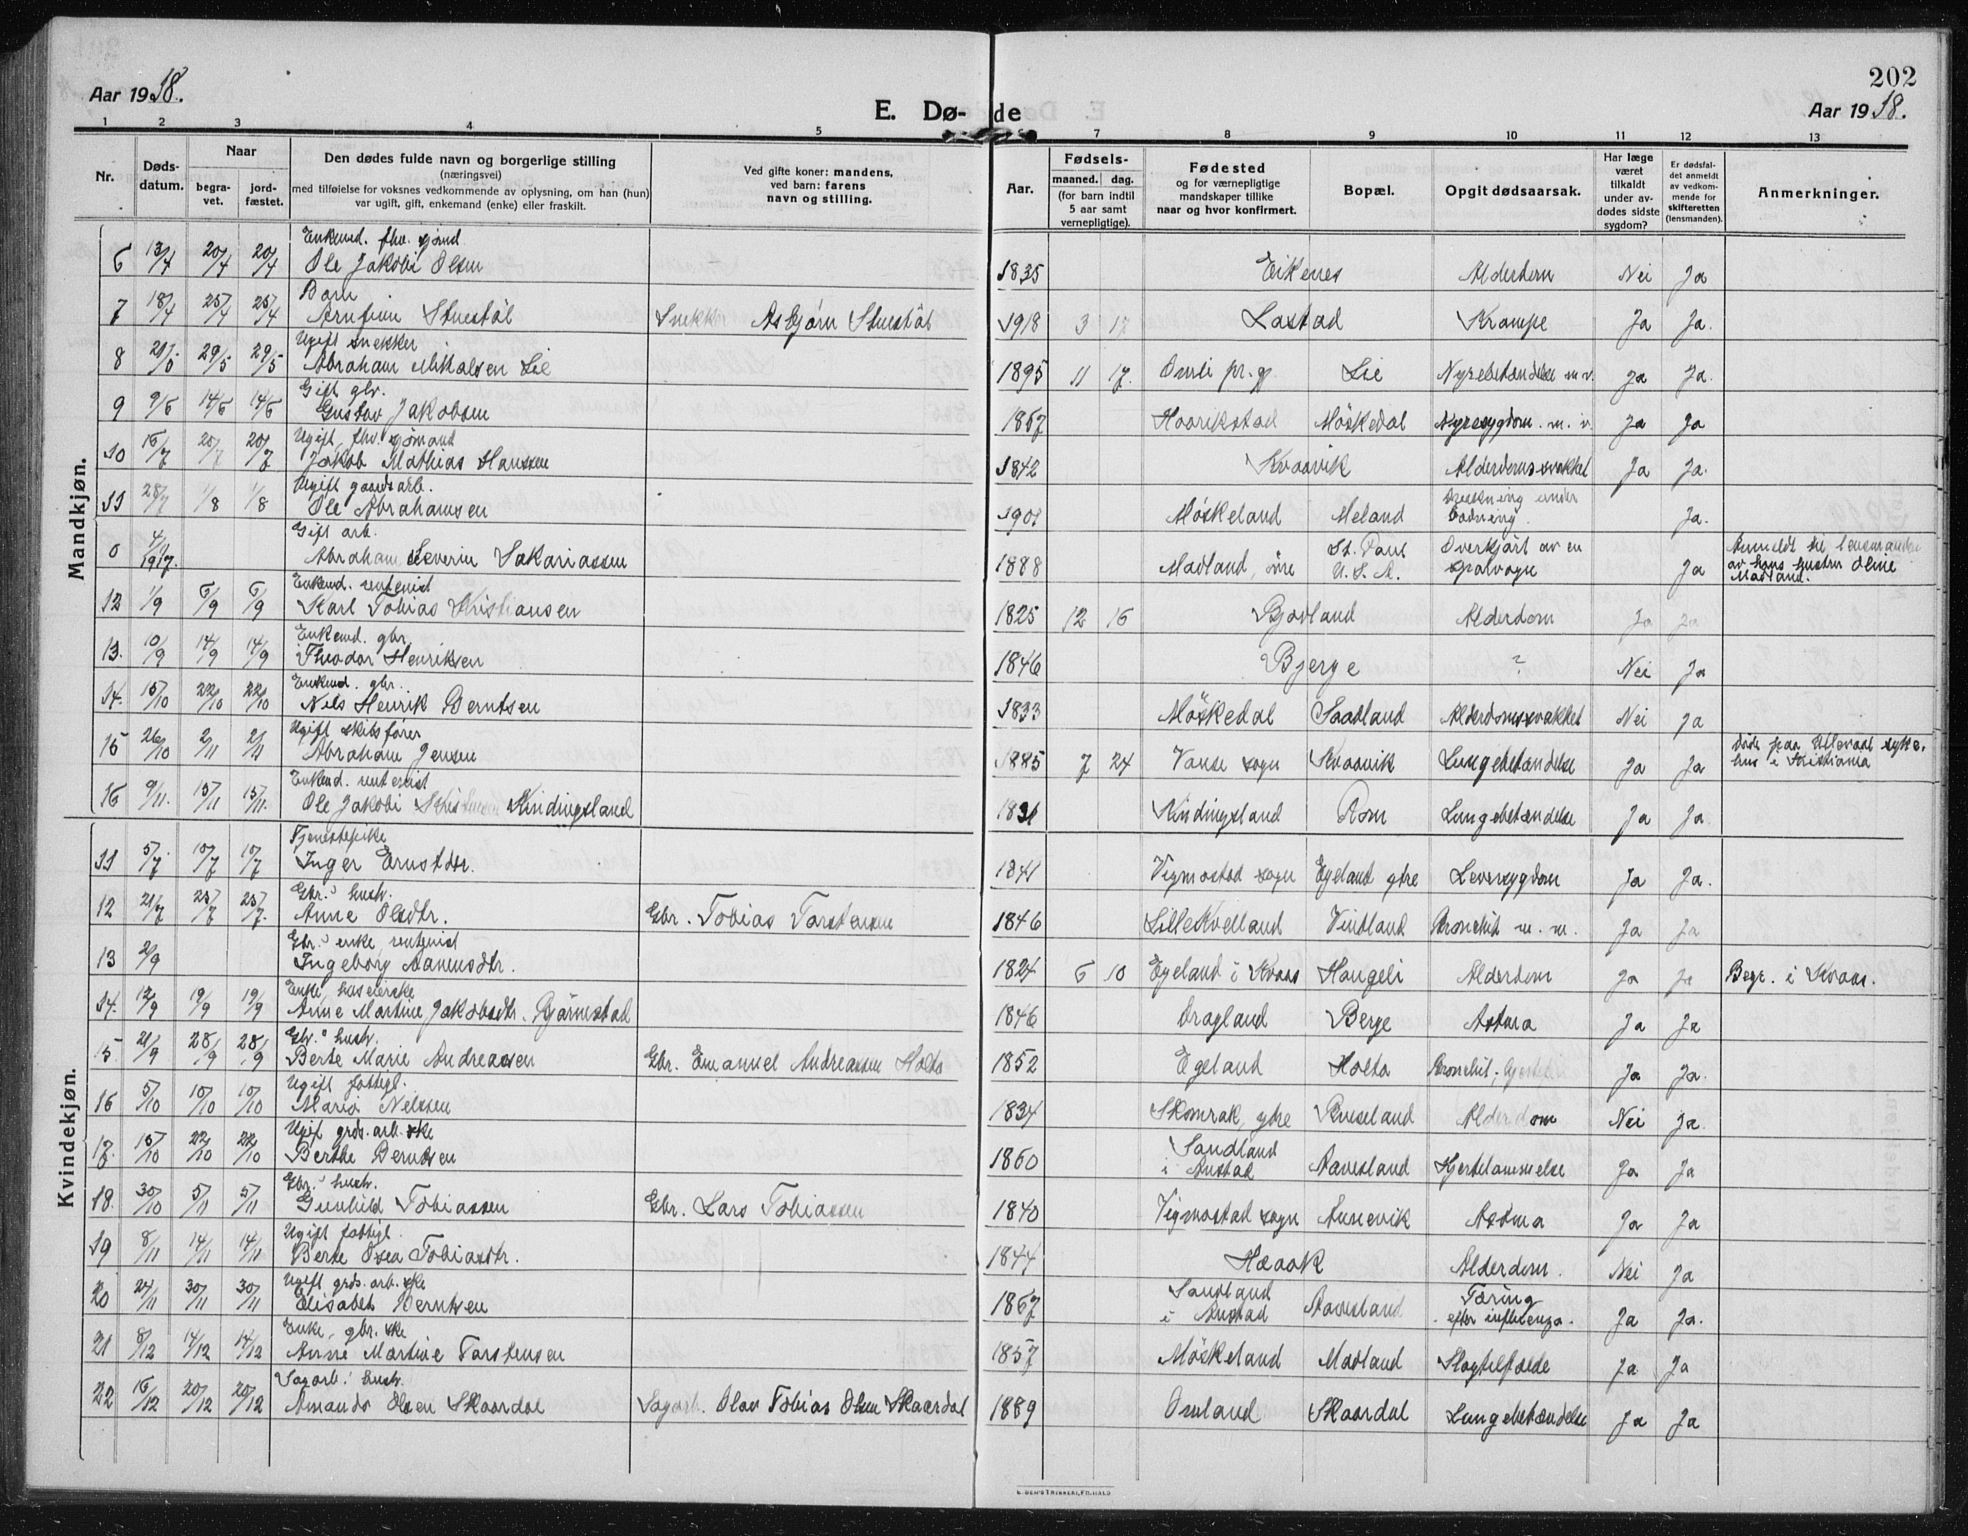 202
Aar 1918.
E. Dø- de
Aar 1918.
1 2 3 4 5 6 7 8 9 10 11 12 13
Nr.
Døds-datum.
Naar
begra-vet.
jord-fæstet.
Den dødes fulde navn og borgerlige stilling
(næringsvei)
med tilføielse for voksnes vedkommende av oplysning, om han (hun)
var ugift, gift, enkemand (enke) eller fraskilt.
Ved gifte koner: mandens,
ved barn: farens
navn og stilling.
Aar.
Fødsels-
maaned. dag.
(for barn indtil
5 aar samt
vernepligtige).
Fødested
og for værnepligtige
mandskaper tillike
naar og hvor konfirmert.
Bopæl.
Opgit dødsaarsak.
Har læge
været
tilkaldt
under av-
dødes sidste
sygdom?
Er dødsfal-
det anmeldt
av vedkom-
mende for
skifteretten
(lensmanden).
Anmerkninger.
Mandkjøn.
6 13/4 20/4 20/4 Enkemd. fhv. sjømd Ole Jakobi Olsen 1835 Eikenes Alderdom Nei Ja
7 18/4 25/4 25/4 Barn Arnfinn Stuestøl Snekker Asbjørn Stuestøl 1918 3 17 Lastad Krampe Ja Ja.
8 21/5 29/5 29/5 Ugift snekker Abraham Mikalsen Lie 1895 11 17. Omli pr.gj. Lie Nyrebetændelse m.v. Ja Ja.
9 9/6 14/6 14/6 Gift gbr. Gustav Jakobsen 1867 Haarikstad Møskedal Nyresygdom. m. v. Ja Ja
10 16/7 20/7 20/7 Ugift, fhv. sjømand Jakob Mathias Hanssen 1842 Kvaavik Alderdomssvakhet Ja Ja.
11 28/7 1/8 1/8 Ugift gaardsarb. Ole Abrahamsen 1901 Møskeland Meland Druckning under badning. Ja.
0 4/11 1917. Gift arb. Abraham Severin Sakariassen 1888 Madland, øvre St. Paul U.S.A. Overkjørt av en sporvogn Ja Anmeldt til lensmanden av hans hustru Oline Madland.
12 1/9 6/9 6/9 Enkemd. rentenist Karl Tobias Kristiansen 1825 12 16 Bjodland Alderdom Ja Ja
13. 10/9 14/9 14/9 Enkemd. gbr. Theodor Henriksen 1846 Bjerge ? Nei Ja
14. 15/10 22/10 22/10 Enkemd. gbr. Nils Henrik Berntsen 1833 Møskedal Saadland Alderdomssvakhet Nei Ja
15 26/10 2/11 2/11 Ugift skibsfører Abraham Jensen 1885 7 24 Vanse sogn Kvaavik Lungebetændelse Ja Ja Døde paa Ullevaal syke-hus i Kristiania
16 9/11. 15/11 15/11. Enkemd. rentenist Ole Jakobi Kindingsland 1831 Kindingsland Rom Lungebetændelse Ja Ja.
Kvindekjøn.
11 5/7 10/7 10/7 Tjenestepike Inger Ernstdtr. 1841 Vigmostad sogn Egeland ytre Leversygdom Ja Ja.
12 21/7 25/7 25/7. Gbr.s hustr. Anne Olsdtr. Gbr. Tobias Torstensen 1846 Lille Kvelland Vintland Bronchit m. m. Ja Ja
13 2/9 Gbr.s enke, rentenist Ingeborg Aanensdtr. 1824 6 10 Egeland i Kvaas Haugeli Alderdom Ja Ja Begr. i Kvaas.
14. 12/9 19/9 19/9 Enke, huseierske Anne Martine Jakobsdtr. Gjørnestad 1846 Dragland Berge Astma Ja Ja
15 21/9 28/9 28/9 Gbr.s hustr. Berte Marie Andreassen Gbr. Emanuel Andreassen Holta 1852 Egeland Holta Bronchit; Ja Ja.
16 5/10 10/10 10/10 Ugift fattigl. Maria Nelssen 1834 Skomrak, ytre Kviseland Alderdom Nei Ja.
17. 15/10 22/10 22/10 Ugift grds. arb.ske Berthe Berntsen 1860 Sandland i Austad Aavesland Hjertelammelse Ja Ja
18. 30/10 5/11 5/11 Gbr.s hustr. Gunhild Tobiassen Gbr. Lars Tobiassen 1840 Vigmostad sogn Aunevik Astma Ja Ja
19 8/11 14/11 14/11 Ugift fattigl. Berte Osea Tobiasdtr. 1844 Haaak Alderdom. Nei Ja
20 24/11 30/11 30/11 Ugift grds. arb.ske Elisabet Berntsen 1867 Sandland i Austad Aavesland Tæring efter influenza. Ja Ja.
21 8/12 14/12 14/12 Enke, gbr.ske Anne Martine Torstensen 1857 Møskeland Madland Slagtilfælde Ja Ja
22 16/12 20/12 20/12 Sagarb.s hustr. Amanda Olsen Skaardal Sagarb. Olav Tobias Olsen Skaardal 1889 Omland Skaardal Lungebetændelse Ja Ja